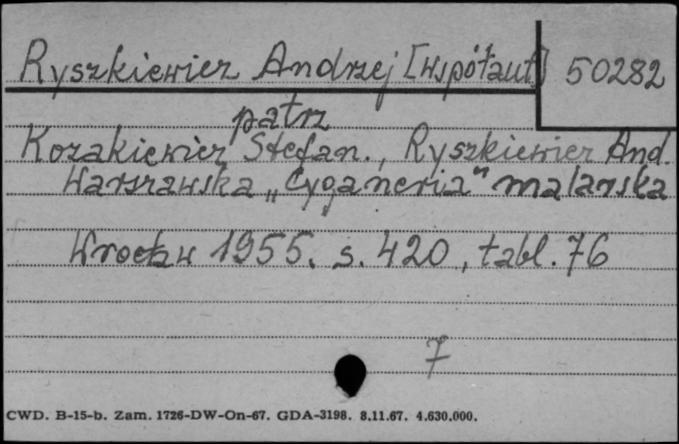 Ryszkiewicz Andrzej [współaut] 50282
patrz
Kozakiewicz Stefan., Ryszkiewicz And.
Warszawska „Cyganeria" malarska
Wrocław 1955. s. 420, tabl. 76
7
CWD. B-15-b. Zam. 1726-DW-On-67. GDA-3198. 8.11.67. 4.630.000.